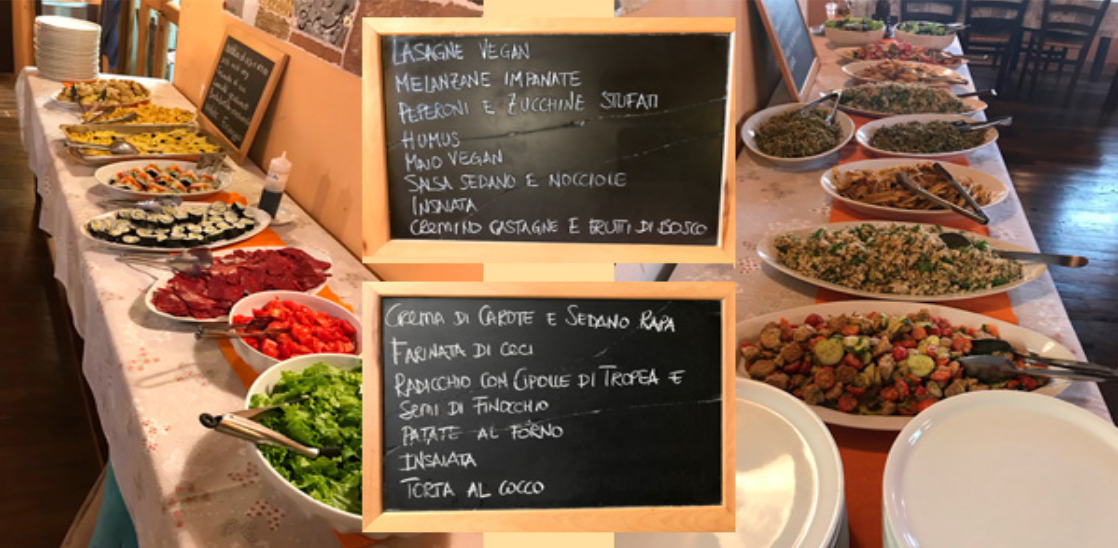 LASAGNE VEGAN
MELANZANE IMPANATE
PEPERONI E ZUCCHINE STUFATI
HUMUS
MAIO VEGAN
SALSA SEDANO E NOCCIOLE
INSALATA
CREMINO CASTAGNE E FRUTTI DI BOSCO
CREMA DI CAROTE E SEDANO RAPA
FARINATA DI CECI
RADICCHIO CON CIPOLLE DI TROPEA E
SEMI DI FINOCCHIO
PATATE AL FORNO
INSALATA
TORTA AL COCCO